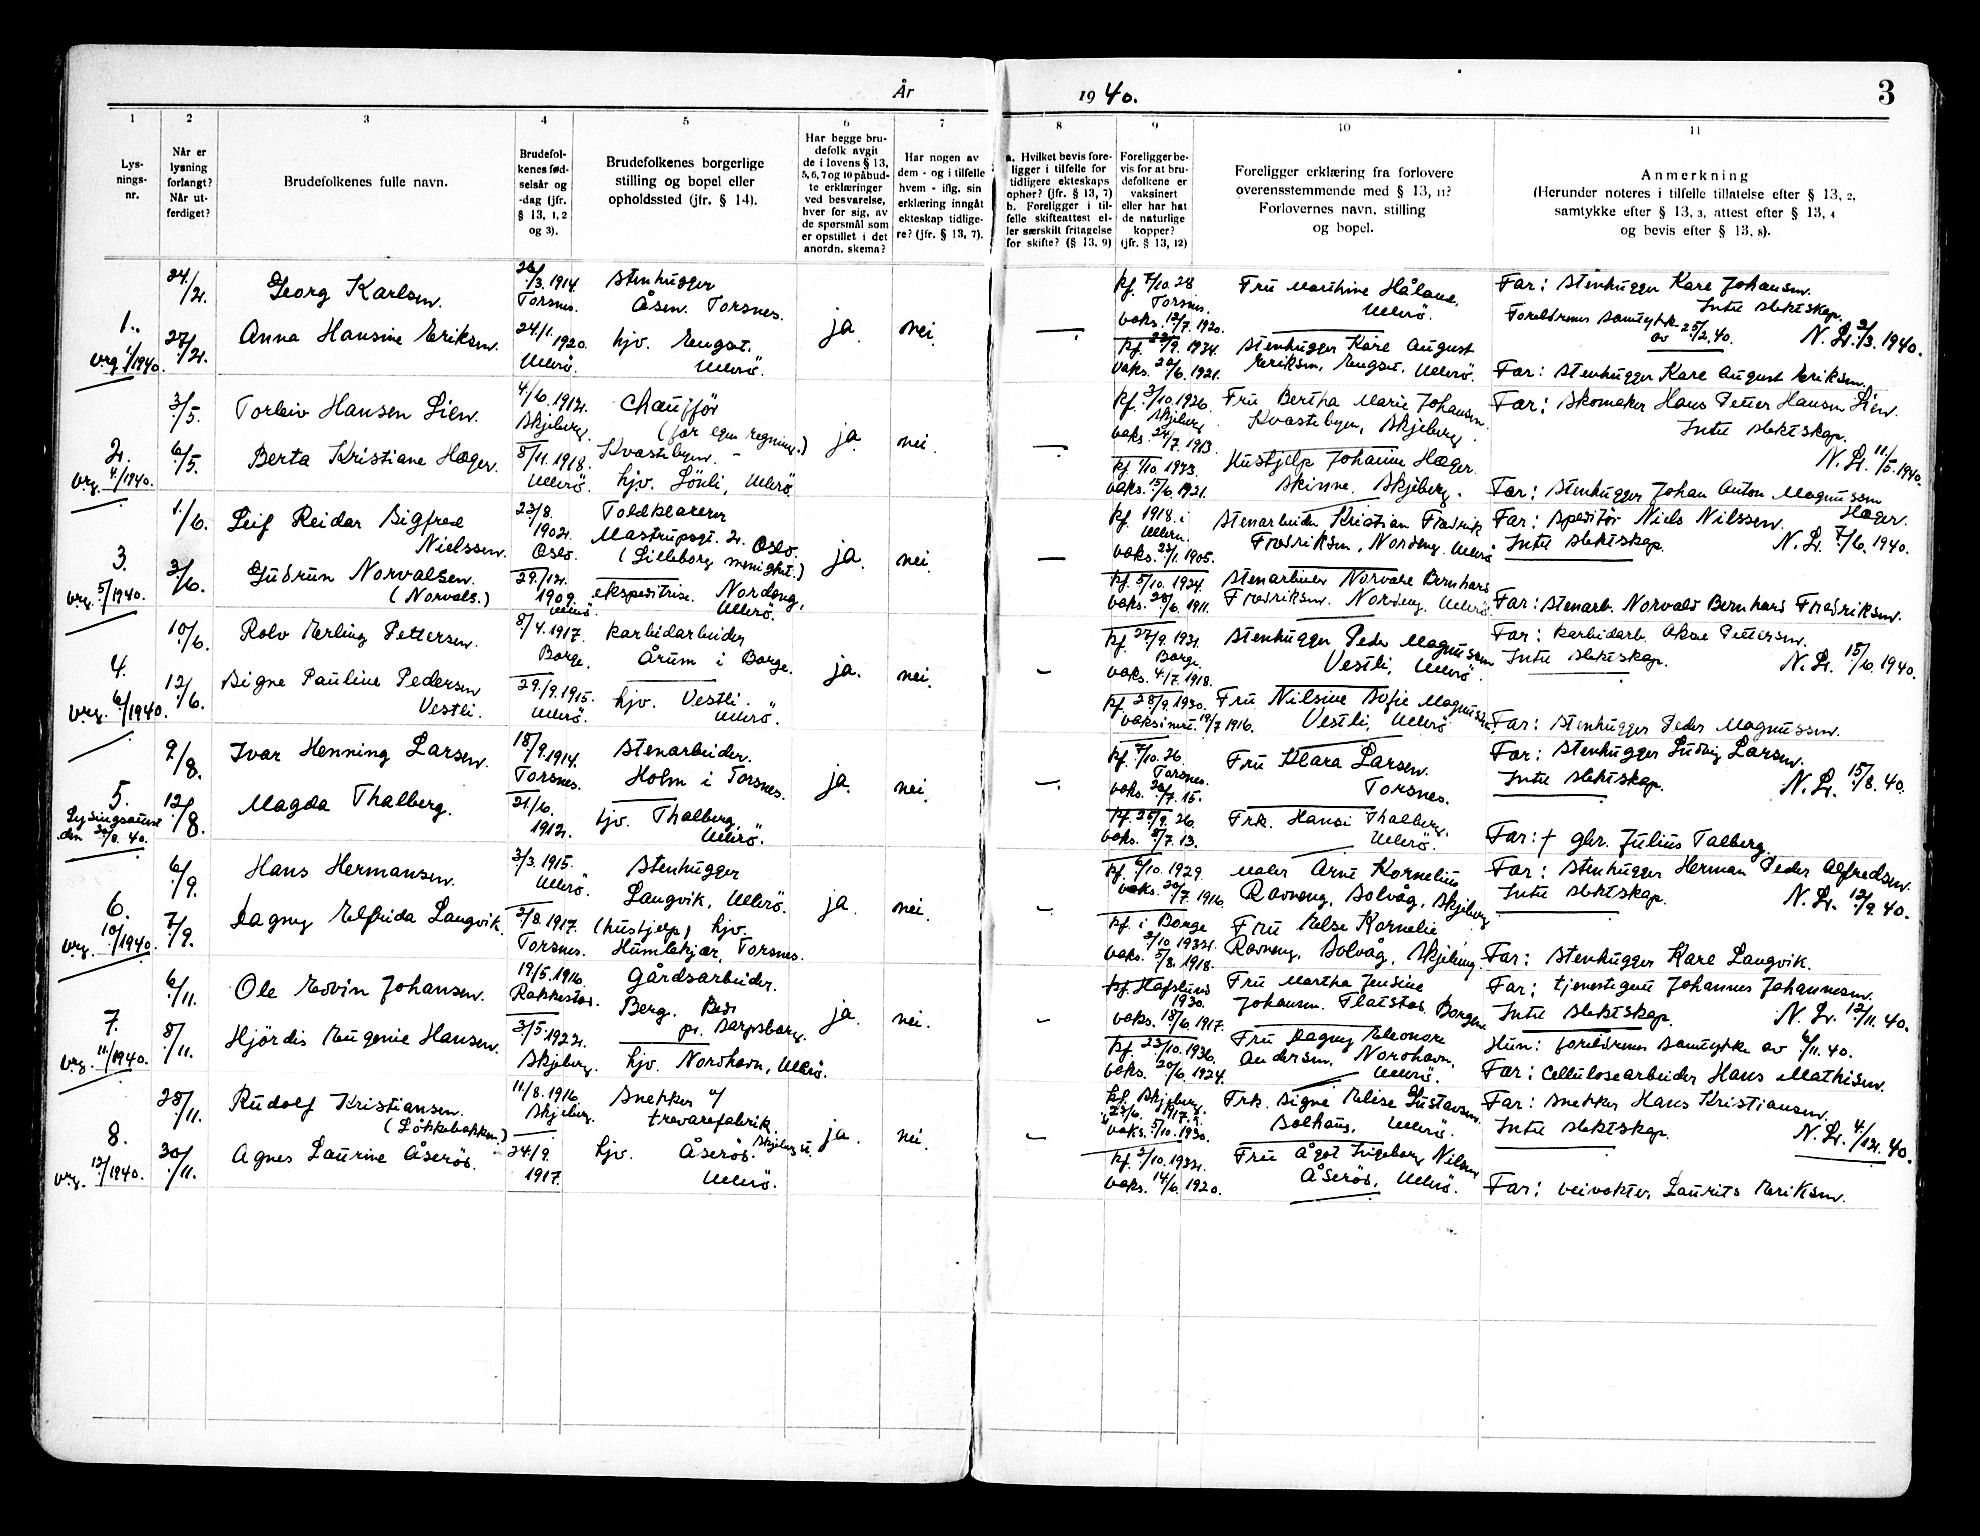 År
19 40.
3
1
Lys-
nings-
nr.
2
Når er
lysning
forlangt?
Når ut-
ferdiget?
3
Brudefolkenes fulle navn.
4
Brudefol-
kenes fød-
selsår og
-dag (jfr.
§ 13, 1, 2
og 3).
5
Brudefolkenes borgerlige
stilling og bopel eller
opholdssted (jfr. § 14).
6
Har begge bru-
defolk avgit
de i lovens § 13,
5, 6, 7 og 10 påbud-
te erklæringer
ved besvarelse,
hver for sig, av
de spørsmål som
er opstillet i det
anordn. skema?
7
Har nogen av
dem - og i tilfelle
hvem - iflg. sin
erklæring inngått
ekteskap tidlige-
re? (jfr. § 13, 7).
8
a. Hvilket bevis fore-
ligger i tilfelle for
tidligere ekteskaps
ophør? (jfr. § 13, 7)
b. Foreligger i til-
felle skifteattest el-
ler særskilt fritagelse
for skifte? (§ 13, 9)
9
Foreligger be-
vis for at bru-
defolkene er
vaksinert
eller har hat
de naturlige
kopper?
(jfr. § 13, 12)
10
Foreligger erklæring fra forlovere
overensstemmende med § 13, 11?
Forlovernes navn, stilling
og bopel.
11
Anmerkning
(Herunder noteres i tilfelle tillatelse efter § 13, 2,
samtykke efter § 13, 3, attest efter § 13, 4
og bevis efter § 13, 8).
1.
vrg. 1/1940.
24/2.
27/2.
Georg Karlsen.
Anna Hansine Eriksen.
26/3. 1914
Torsnes.
24/1. 1920.
Ullerö.
Stenhugger
Åsen. Torsnes.
hjv. Engst.
Ullerö.
ja
nei.
kf. 7/10. 28
Torsnes.
vaks. 12/7. 1920.
kf. 23/9. 1934.
vaks. 20/6. 1921.
Fru Marthine Håland,
Ullerö.
Stenhugger Karl August
Eriksen, Engst, Ullerö.
Far: Stenhugger Karl Johansen.
Intet slektskap.
Foreldrenes samtykke
av 25/2. 40.
N. Lr. 2/3. 1940.
Far: Stenhugger Karl August Eriksen.
2.
vrg. 4/1940.
3/5.
6/5.
Torleiv Hansen Lien.
Berta Kristiane Hæger.
4/6. 1912.
Skjeberg.
8/11. 1918.
Ullerö.
Chaufför
(for egen regning.)
Kvastebyen. -
hjv. Lönli, Ullerö.
ja.
nei.
kf. 3/10. 1926.
Skjeberg
vaks. 24/7. 1913.
kf. 1/10. 1933.
vaks. 15/6. 1921.
Fru Bertha Marie Johansen.
Kvastebyen, Skjeberg.
Hushjelp Johanne Hæger.
Skinne. Skjeberg.
Far: Skomaker Hans Petter Hansen Lien.
Intet slektskap.
N. Lr. 11/5. 1940.
Far: Stenhugger Johan Anton Magnussen
Hæger.
3.
vrg. 5/1940.
1/6.
3/6.
Leif Reidar Sigfred
Nielssen.
Gudrun Norvalsen.
(Norvals.)
23/8.
1902.
Oslo.
29./12.
1909.
Ullerö.
Toldklarerer
Mastrupsgt. 2. Oslo.
(Lilleborg menighet.)
ekspeditrise. Nordeng,
Ullerö.
ja.
nei.
kf. 1918. i
Ullern.
vaks. 23/1. 1905.
kf. 5/10. 1924.
vaks. 28/6. 1911.
Stenarbeider Kristian Fredrik
Fredriksen, Nordeng. Ullerö
Stenarbeider Norvald Bernhard
Fredriksen. Nordeng, Ullerö
Far: Speditör Niels Nilssen.
Intet slektskap.
N. Lr. 7/6. 1940.
Far: Stenarb. Norvald Bernhard Fredriksen.
4.
vrg. 6/1940.
10/6.
12/6.
Rolv Erling Pettersen.
Signe Pauline Pedersen
Vestli.
8/4. 1917.
Borge.
29./9. 1915.
Ullerö.
Karbidarbeider
Årum i Borge.
hjv. Vestli.
Ullerö.
ja.
nei.
kf. 27/9. 1931.
Borge.
vaks. 4/7. 1918.
kf. 28/9. 1930.
vaksineret. 19/7 1916.
Stenhugger Peder Magnussen
Vestli, Ullerö.
Fru Nilsine Sofie Magnussen.
Vestli, Ullerö
Far: Karbidarb. Aksel Pettersen.
Intet slektskap.
N. Lr. 15/6. 1940.
Far: Stenhugger Peder Magnussen.
5.
den 30/8. 40.
9/8.
12/8.
Ivar Henning Larsen.
Magda Thalberg.
18/9. 1914.
Torsnes.
21/10.
1912.
Stenarbeider.
Holm i Torsnes.
hjv. Thalberg,
Ullerö.
ja.
nei.
kf. 7/10. 26.
Torsnes.
vaks. 26/7. 15.
kf. 25/9. 26.
vaks. 8/7. 13.
Fru Klara Larsen.
Torsnes.
Frk. Hansi Thalberg.
Ullerö.
Far: Stenhugger Ludvig Larsen.
Intet slektskap.
N. Lr. 15/8. 40.
Far: † gbr. Julius Talberg.
6.
vrg. 10/1940.
6/9.
7/9.
Hans Hermansen.
Dagny Elfrida Langvik.
3/3. 1915.
Ullerö.
2/8. 1917.
Torsnes.
Stenhugger
Langvik, Ullerö.
(hushjelp) hjv.
Humlekjær, Torsnes.
ja.
nei.
kf. 6/10. 1929.
vaks. 20/7. 1916.
kf. i Borge
2/10. 1932.
vaks. 5/8. 1918.
Maler Arne Kornelius
Ravneng, Solvåg, Skjeberg
Fru Else Kornelie
Ravneng, Solvåg, Skjeberg.
Far: Stenhugger Herman Peder Alfredsen.
Intet slektskap.
N. Lr. 12/9. 40.
Far: Stenhugger Karl Langvik.
7.
vrg. 11/1940.
6/11.
8/11.
Ole Edvin Johansen.
Hjördis Eugenie Hansen.
19/5. 1916.
Rakkestad.
3/5. 1922.
Skjeberg.
Gårdsarbeider.
Berg.
pr. Sarpsborg.
hjv. Nordhavn, Ullerö.
ja.
nei.
kf. Hafslund
1930.
vaks. 18/6. 1917.
kf. 23/10. 1936.
vaks. 20/6. 1924.
Fru Martha Jensine
Johansen. Flatstad, Borgen
Fru Dagny Eleonore
Andersen. Nordhavn.
Ullerö.
Far: tjenestegutt Johannes Johannesen.
Intet slektskap.
N. Lr. 12/11. 40.
Hun: foreldrenes samtykke av 6/11. 40.
Far: Cellulosearbeider Hans Mathisen.
8.
vrg. 12/1940.
28/11.
30/11.
Rudolf Kristiansen.
(Løkkebakken.)
Agnes Laurine Åseröd.
11/8. 1916.
Skjeberg.
24/9.
1917.
Snekker v/
trevarefabrik.
hjv. Åseröd.
Ullerö.
ja.
nei.
kf. Skjeberg.
vaks. 5/10. 1930.
kf. 2/10. 1932.
vaks. 14/6. 1920.
Frk. Signe Elise Gustavsen
Solhaug, Ullerö.
Fru Ågot Ingeborg Nilsen
Åseröd, Ullerö.
Far: Snekker Hans Kristiansen.
Intet slektskap.
N. Lr. 4/12. 40.
Far: veivokter Laurits Eriksen.